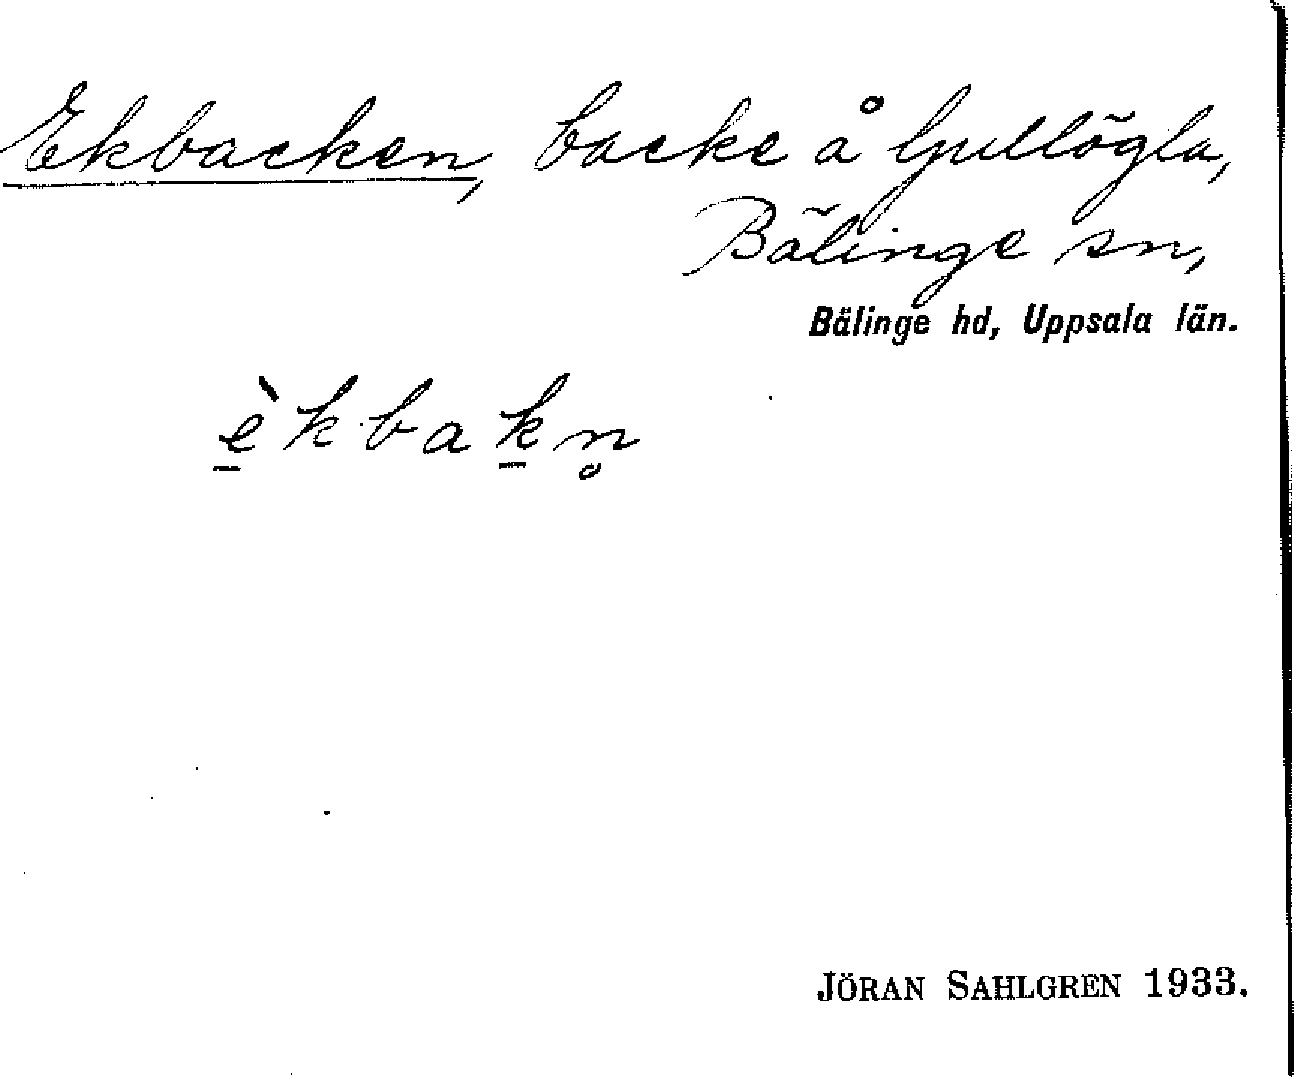 Ekbacken, backe å Gullögla,
Bälinge sn,
Bälinge hd, Uppsala län.
è̱kbaḵn̥
JÖRAN SAHLGREN 1933.